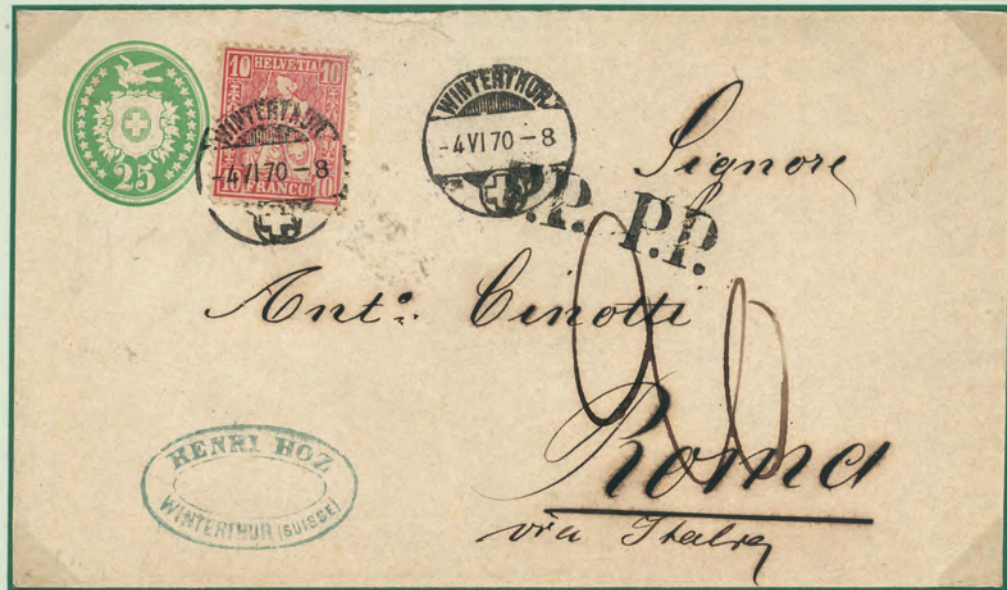 25
10 HELVETIA 10
10 FRANCO 10
WINTERTHUR
-4 VI 70 - 8
WINTERTHUR
-4 VI 70 - 8
P.P. P.P.
Signore
Anto: Cinotti
Roma
via Italia
HENRI HOZ
WINTERTHUR (SUISSE)